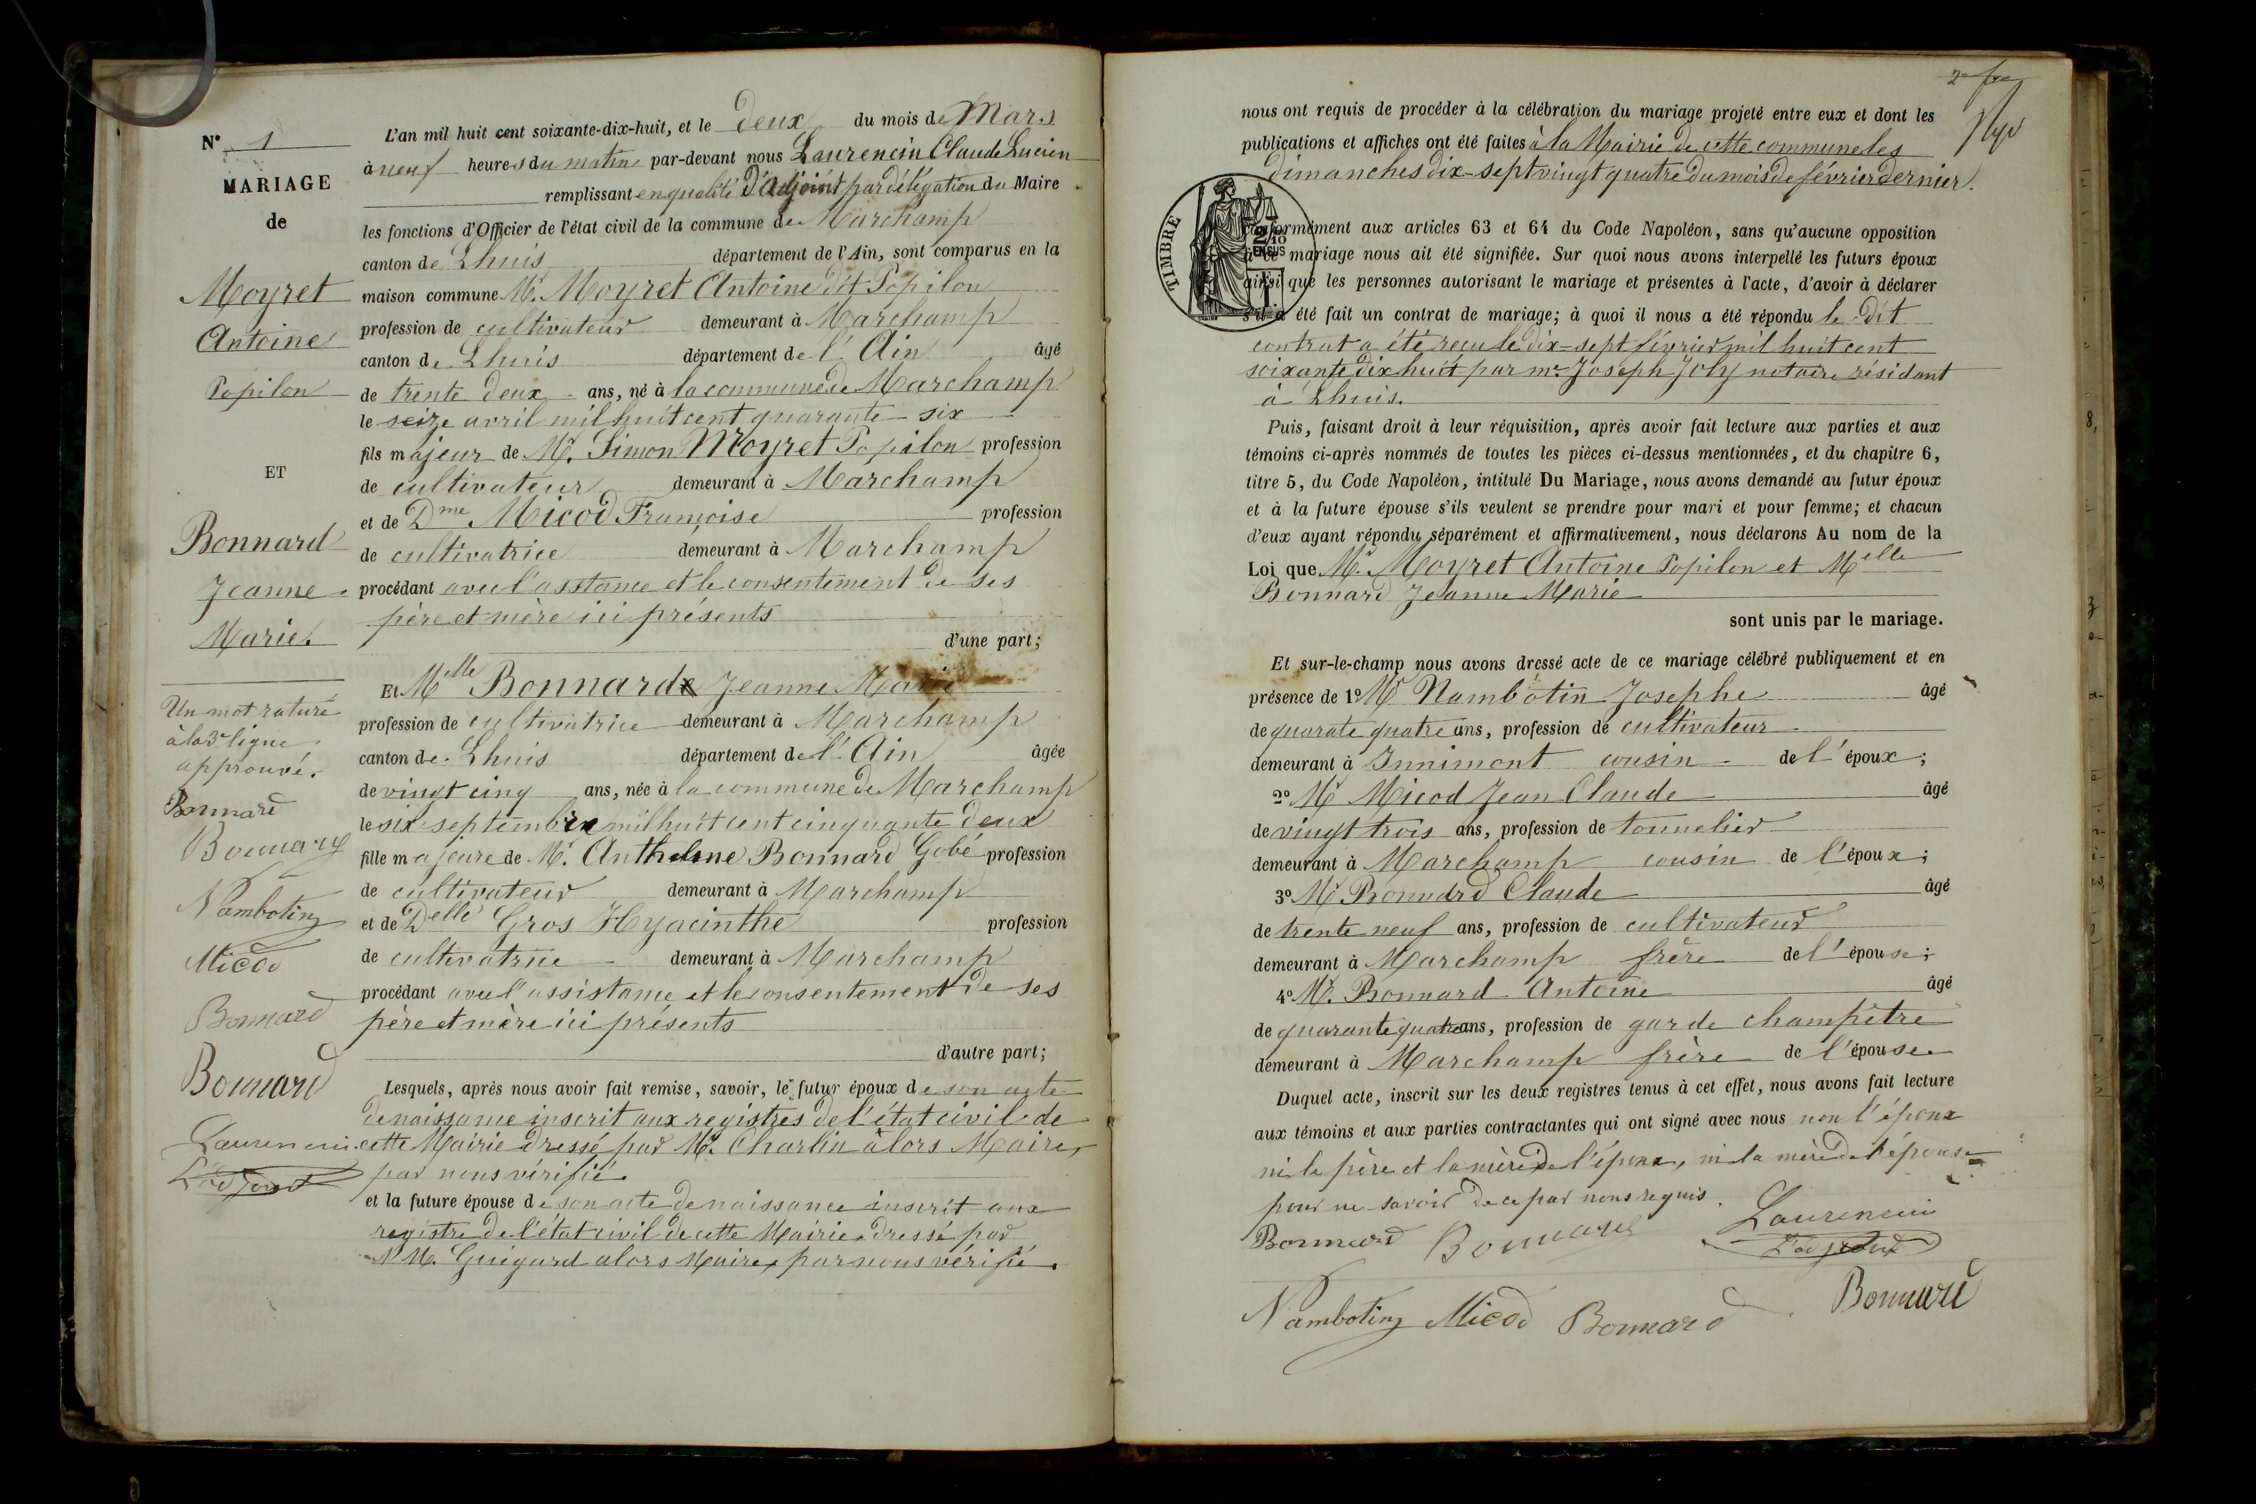 N° 1
MARIAGE
de
Moyret
Antoine
Popilon
ET
Bonnard
Jeanne
Marie.
Un mot raturé
à la 3e ligne
approuvé.
Bonnard
Bonnard
Nambotin
Micod
Bonnard
Bonnard
Laurencin
L'adjoint
L'an mil huit cent soixante-dix-huit, et le deux du mois de Mars
à neuf heures du matin par-devant nous Laurencin Claude Lucien
remplissant en qualité D'Adjoint par délégation du Maire
les fonctions d'Officier de l'état civil de la commune de Marchamp
canton de Lhuis département de l'Ain, sont comparus en la
maison commune Mr. Moyret Antoine dit Popilon
profession de cultivateur demeurant à Marchamp
canton de Lhuis département de l'Ain âgé
de trente deux ans, né à la commune de Marchamp
le seize avril mil huit cent quarante-six
fils majeur de Mr. Simon Moyret Popilon profession
de cultivateur demeurant à Marchamp
et de Dme Micod Françoise profession
de cultivatrice demeurant à Marchamp
procédant avec l'assitance et le consentement de ses
père et mère ici présents
d'une part;
Et Melle Bonnarde Jeanne Marie
profession de cultivatrice demeurant à Marchamp
canton de Lhuis département de l'Ain âgée
de vingt cinq ans, née à la commune de Marchamp
le six septembre mil huit cent cinquante deux
fille majeure de Mr. Anthelme Bonnard Gobé profession
de cultivateur demeurant à Marchamp
et de Delle Gros Hyacinthe profession
de cultivatrice demeurant à Marchamp
procédant avec l'assistance et le consentement de ses
père et mère ici présents
d'autre part;
Lesquels, après nous avoir fait remise, savoir, le futur époux de son acte
de naissance inscrit aux registres de l'état civil de
cette Mairie dressé par Mr. Charlin alors Maire,
par nous vérifié
et la future épouse de son acte de naissance inscrit aux
registre de l'état civil de cette Mairie dressé par
M. Guigard alors Maire, par nous vérifié.
nous ont requis de procéder à la célébration du mariage projeté entre eux et dont les
publications et affiches ont été faites à la Mairie de cette commune les
dimanches dix-sept vingt quatre du mois de février dernier.
TIMBRE
2/10
EN SUS
conformément aux articles 63 et 64 du Code Napoléon, sans qu'aucune opposition
à ce mariage nous ait été signifiée. Sur quoi nous avons interpellé les futurs époux
ainsi que les personnes autorisant le mariage et présentes à l'acte, d'avoir à déclarer
s'il a été fait un contrat de mariage; à quoi il nous a été répondu le dit
contrat a été reçu le dix-sept février mil huit cent
soixante dix huit par me. Joseph Joly notaire résidant
à Lhuis.
Puis, faisant droit à leur réquisition, après avoir fait lecture aux parties et aux
témoins ci-après nommés de toutes les pièces ci-dessus mentionnées, et du chapitre 6,
titre 5, du Code Napoléon, intitulé Du Mariage, nous avons demandé au futur époux
et à la future épouse s'ils veulent se prendre pour mari et pour femme; et chacun
d'eux ayant répondu séparément et affirmativement, nous déclarons Au nom de la
Loi que Mr. Moyret Antoine Popilon et Melle
Bonnard Jeanne Marie
sont unis par le mariage.
Et sur-le-champ nous avons dressé acte de ce mariage célébré publiquement et en
présence de 1° Mr Nambotin Josephe âgé
de quarate quatre ans, profession de cultivateur
demeurant à Innimont cousin de l'époux;
2° Mr Micod Jean Claude âgé
de vingt trois ans, profession de tonnelier
demeurant à Marchamp cousin de l'époux;
3° Mr Bonnard Claude âgé
de trente neuf ans, profession de cultivateur
demeurant à Marchamp frère de l'épouse;
4° Mr. Bonnard Antoine âgé
de quarante quatre ans, profession de garde champêtre
demeurant à Marchamp frère de l'épouse
Duquel acte, inscrit sur les deux registres tenus à cet effet, nous avons fait lecture
aux témoins et aux parties contractantes qui ont signé avec nous non l'époux
ni le père et la mère de l'époux, ni la mère de l'épouse
pour ne savoir de ce par nous requis.
Bonnard Bonnard Laurencin
L'adjoint
Nambotin Micod Bonnard Bonnard